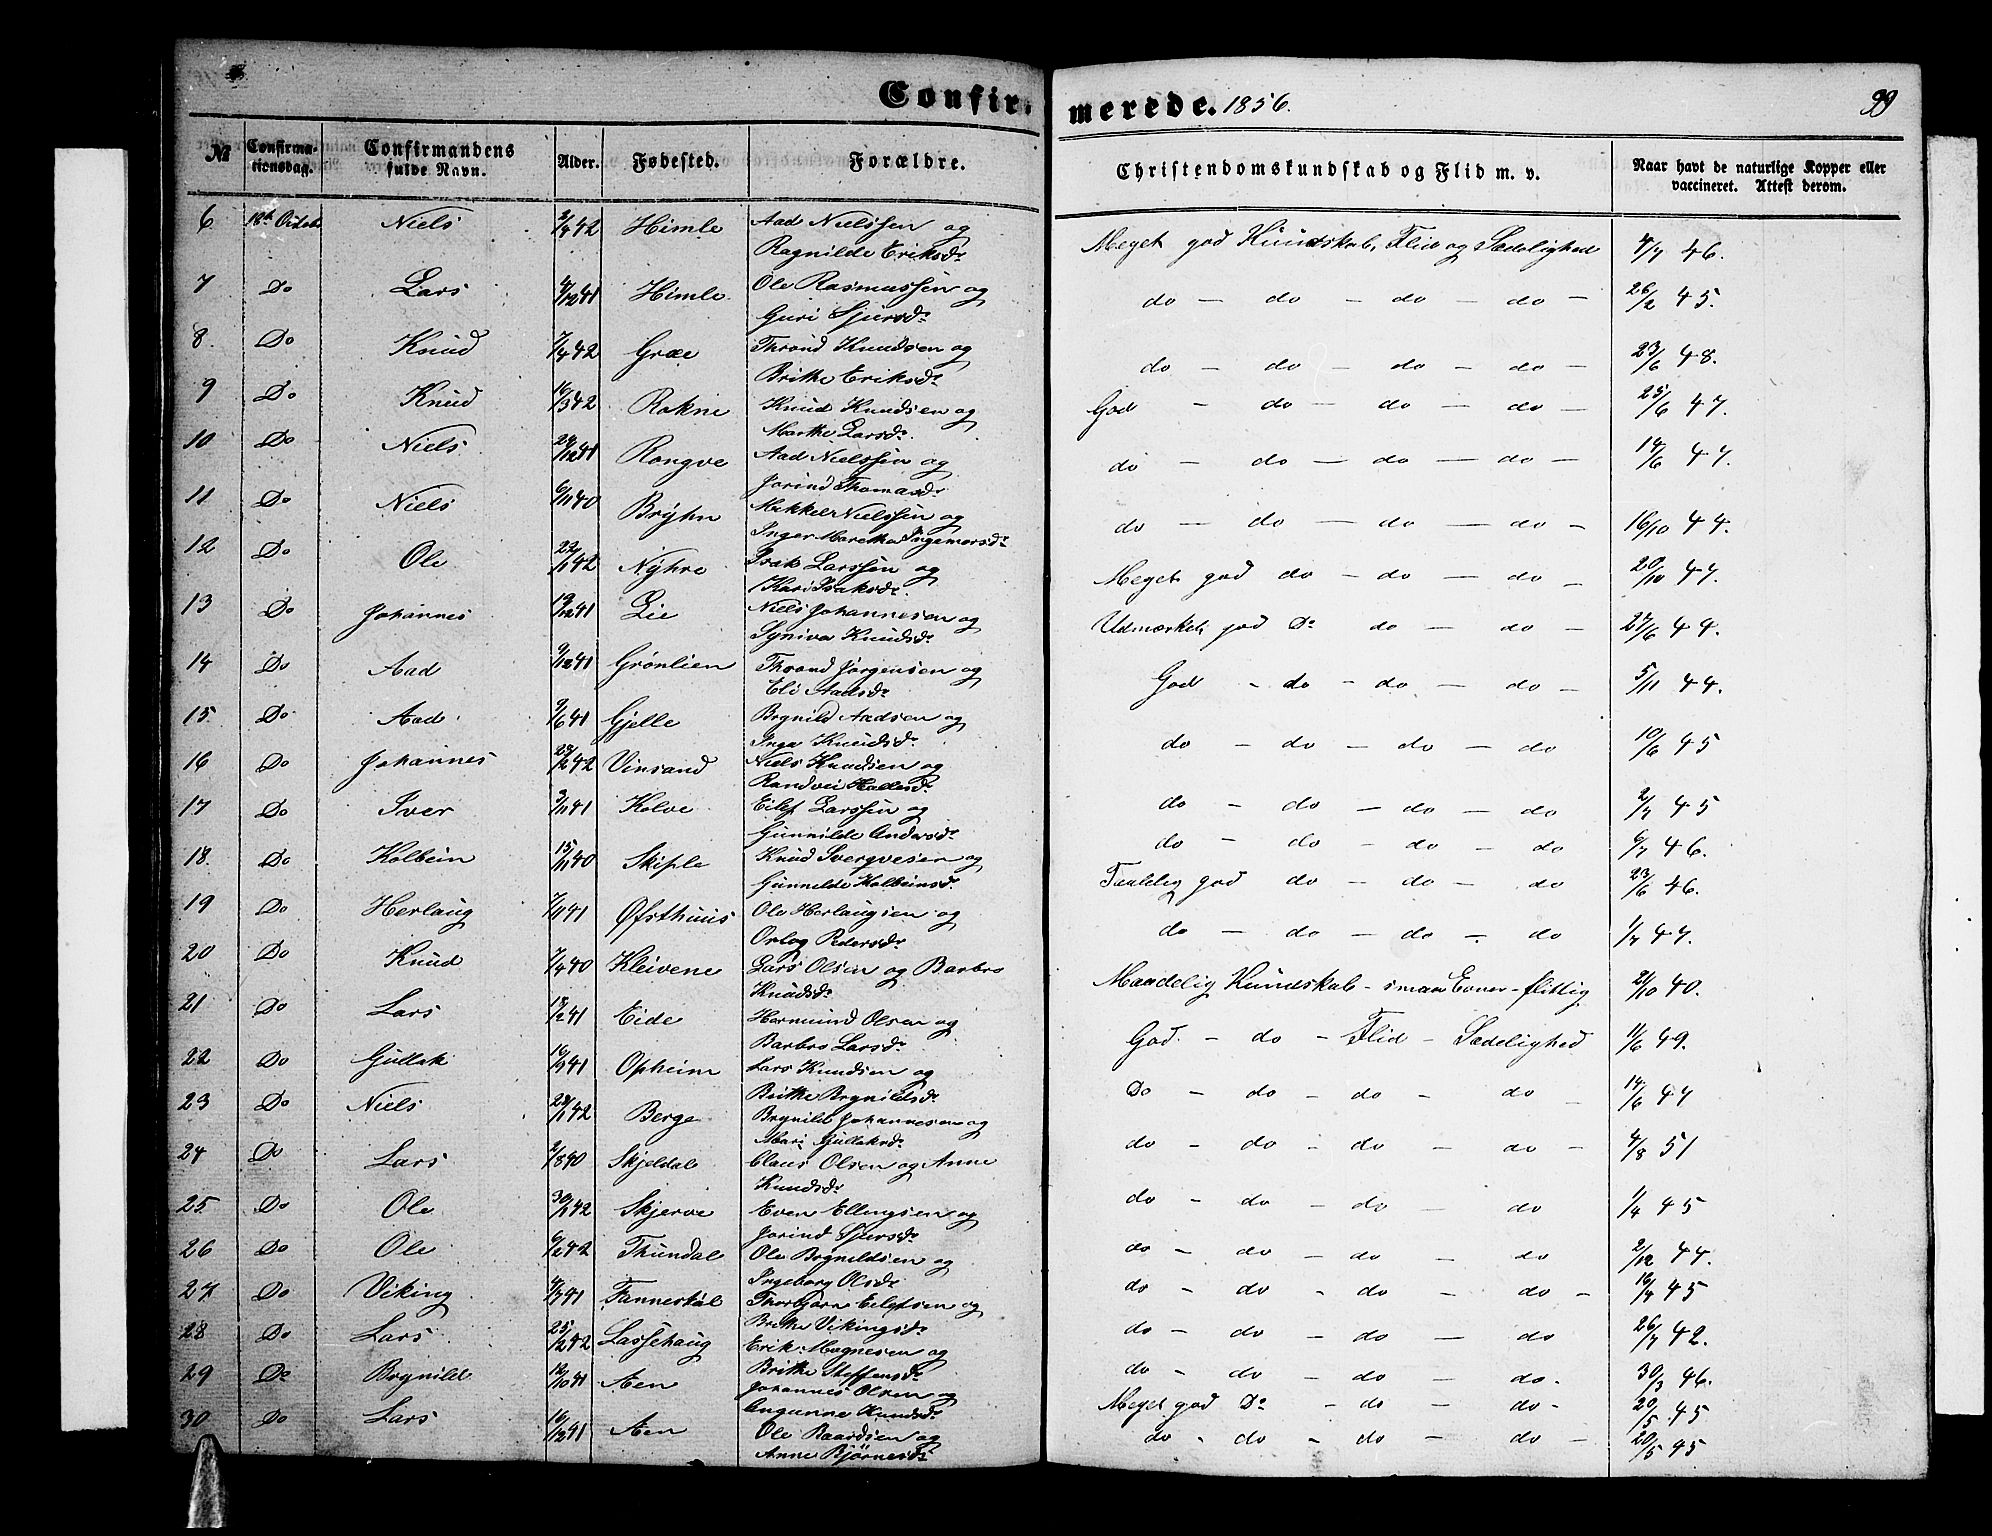 Confirmerede. 1856. 99
№ Confirmationsdag. Confirmandens fulde Navn. Alder. Fødested. Forældre. Christendomskundskab og Flid m. v. Naar havt de naturlige Kopper eller vaccineret. Attest derom.
6 18de Octobr Niels 2/4 42 Himle Aad Nielssen og Meget god Kundskab, Flid og Sædelighed 4/7 46.
Ragnilde Eriksdr
7 Do Lars 4/12 41 Himle Ole Rasmussen og do — do — do — do — 26/2 45.
Guri Sjursdr
8. Do Knud 7/4 42 Græe Thrond Knudsen og do — do — do — do — 23/6 48.
Brithe Eriksdr
9 Do Knud 16/3 42 Rokne Knud Knudsen og God — do — do — do — 25/6 47.
Marthe Larsdr
10 Do Niels 24/12 41 Rongve Aad Nielssen og do — do — do — do — 14/6 47.
Jorind Thomasdr
11 Do Niels 6/11 40 Brÿhn Mikkel Nielssen og do — do — do — do — 16/10 44.
Inger Marethe Ingemarsdr
12 Do Ole 22/1 42 Nÿhre Isak Larssen og Meget god do — do — do — 20/10 47.
Kari Isaksdr
13 Do Johannes 19/12 41 Lie Niels Johannesen og Udmærket god Do do — do — 27/6 49.
Syniva Knudsdr
14 Do Aad 9/12 41 Grønlien Thrond Jørgensen og God — do — do — do — 5/11 44.
Eli Aadsdr
15. Do Aad 9/6 41 Gjelle Brynild Aadsen og do — do — do — do 10/6 45
Inga Knudsdr
16 Do Johannes 28/2 42 Vinsand Niels Knudsen og do — do — do — do 2/7 45
Randvei
17 Do Iver 3/11 41 Kolve Eilef Larssen og do — do — do — do 6/7 46.
Gunnilde Andersdr
18. Do Kolbein 15/11 40 Skiple Knud og Taalelig god do — do — do 23/6 46.
Gunnilde Kolbeinsdr
19 Do Herlaug 7/1 41 Øfsthuus Ole Herlaugsen og do — do — do — do 1/7 47.
Orlog Pedersdr
20 Do Knud 7/4 40 Kleivene Lars Olsen og Barbro Maadelig Kundskab - smaa Evner - flittig 21/10 40.
Knudsdr
21 Do Lars 18/2 41 Eide Hermund Olsen og God — do — Flid — Sædelighed 11/6 49.
Barbro Larsdr
22 Do Gullak 16/9 41 Opheim Lars Knudsen og Do — do — do — do 14/6 47
Brithe Brynildsdr
23 Do Niels 24/1 42 Berge Brynild Johannesen og do — do — do — do — 4/8 51
Mari Gullaksdr
24 Do Lars 2/8 40 Skjeldal Claus Olsen og Anne do — do — do — do 1/4 45
Knudsdr
25. Do Ole 30/1 42 Skjerve Even Ellingsen og do — do — do — do 2/12 44.
Jorind Sjursdr
26 Do Ole 6/2 42 Thundal Ole Brynildsen og do — do — do — do — 16/4 45
Ingeborg Olsdr
27. Do Viking 4/7 41 Thorbjørn Eilefsen og do — do — do — do 26/7 42.
Brithe Vikingsdr
28 Do Lars 25/2 42 Lassehaug Erik Magnesen og do — do — do — do. 30/3 46.
Brithe Steffensdr
29 Do Brynild 12/10 41 Aen Johannes Olsen og Meget god Do — do — do — 20/5 45
Angunne Knudsdr
30 Do Lars 16/12 41 Aen Ole Baardsen og do — do — do — do — 20/5 45
Anne Bjørnesdr